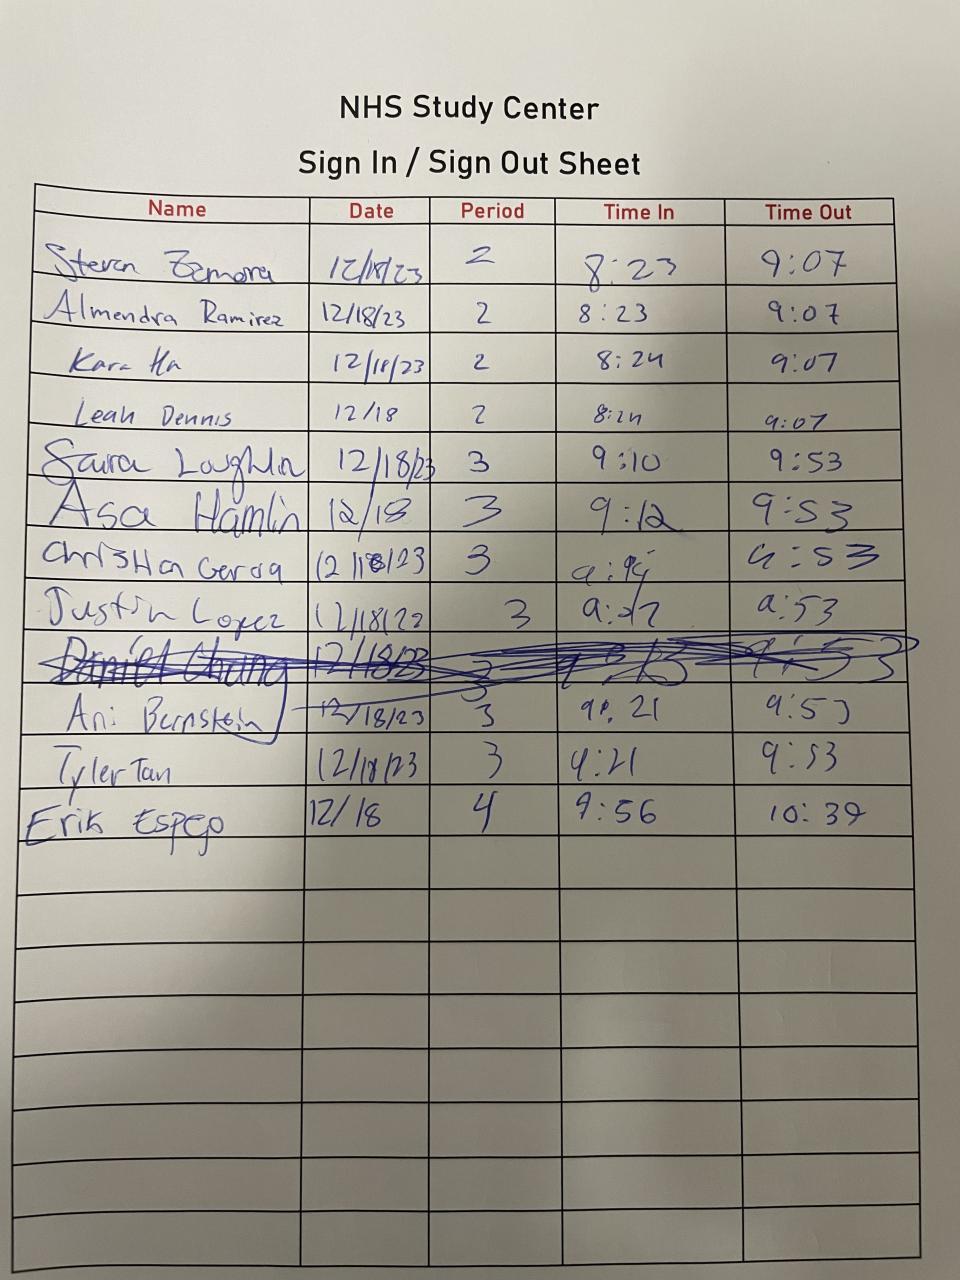 NHS Study Center
Sign In / Sign Out Sheet
Name Date Period Time In Time Out
Steven Zamora 12/18/23 2 8:23 9:07
Almendra Ramirez 12/18/23 2 8:23 9:07
Kara Ha 12/18/23 2 8:24 9:07
Leah Dennis 12/18 2 8:24 9:07
Saura Loughlin 12/18/23 3 9:10 9:53
Asa Hamlin 12/18 3 9:12 9:53
12/18/23 3 9:53
Justin Lopez 3 9:53
Daniel Chung 12/18/23 3 9:13 9:53
Ani Bernstein 12/18/23 3 9:21 9:53
Tyler Tan 12/18/23 3 9:21 9:53
Erik Espejo 12/18 4 9:56 10:39